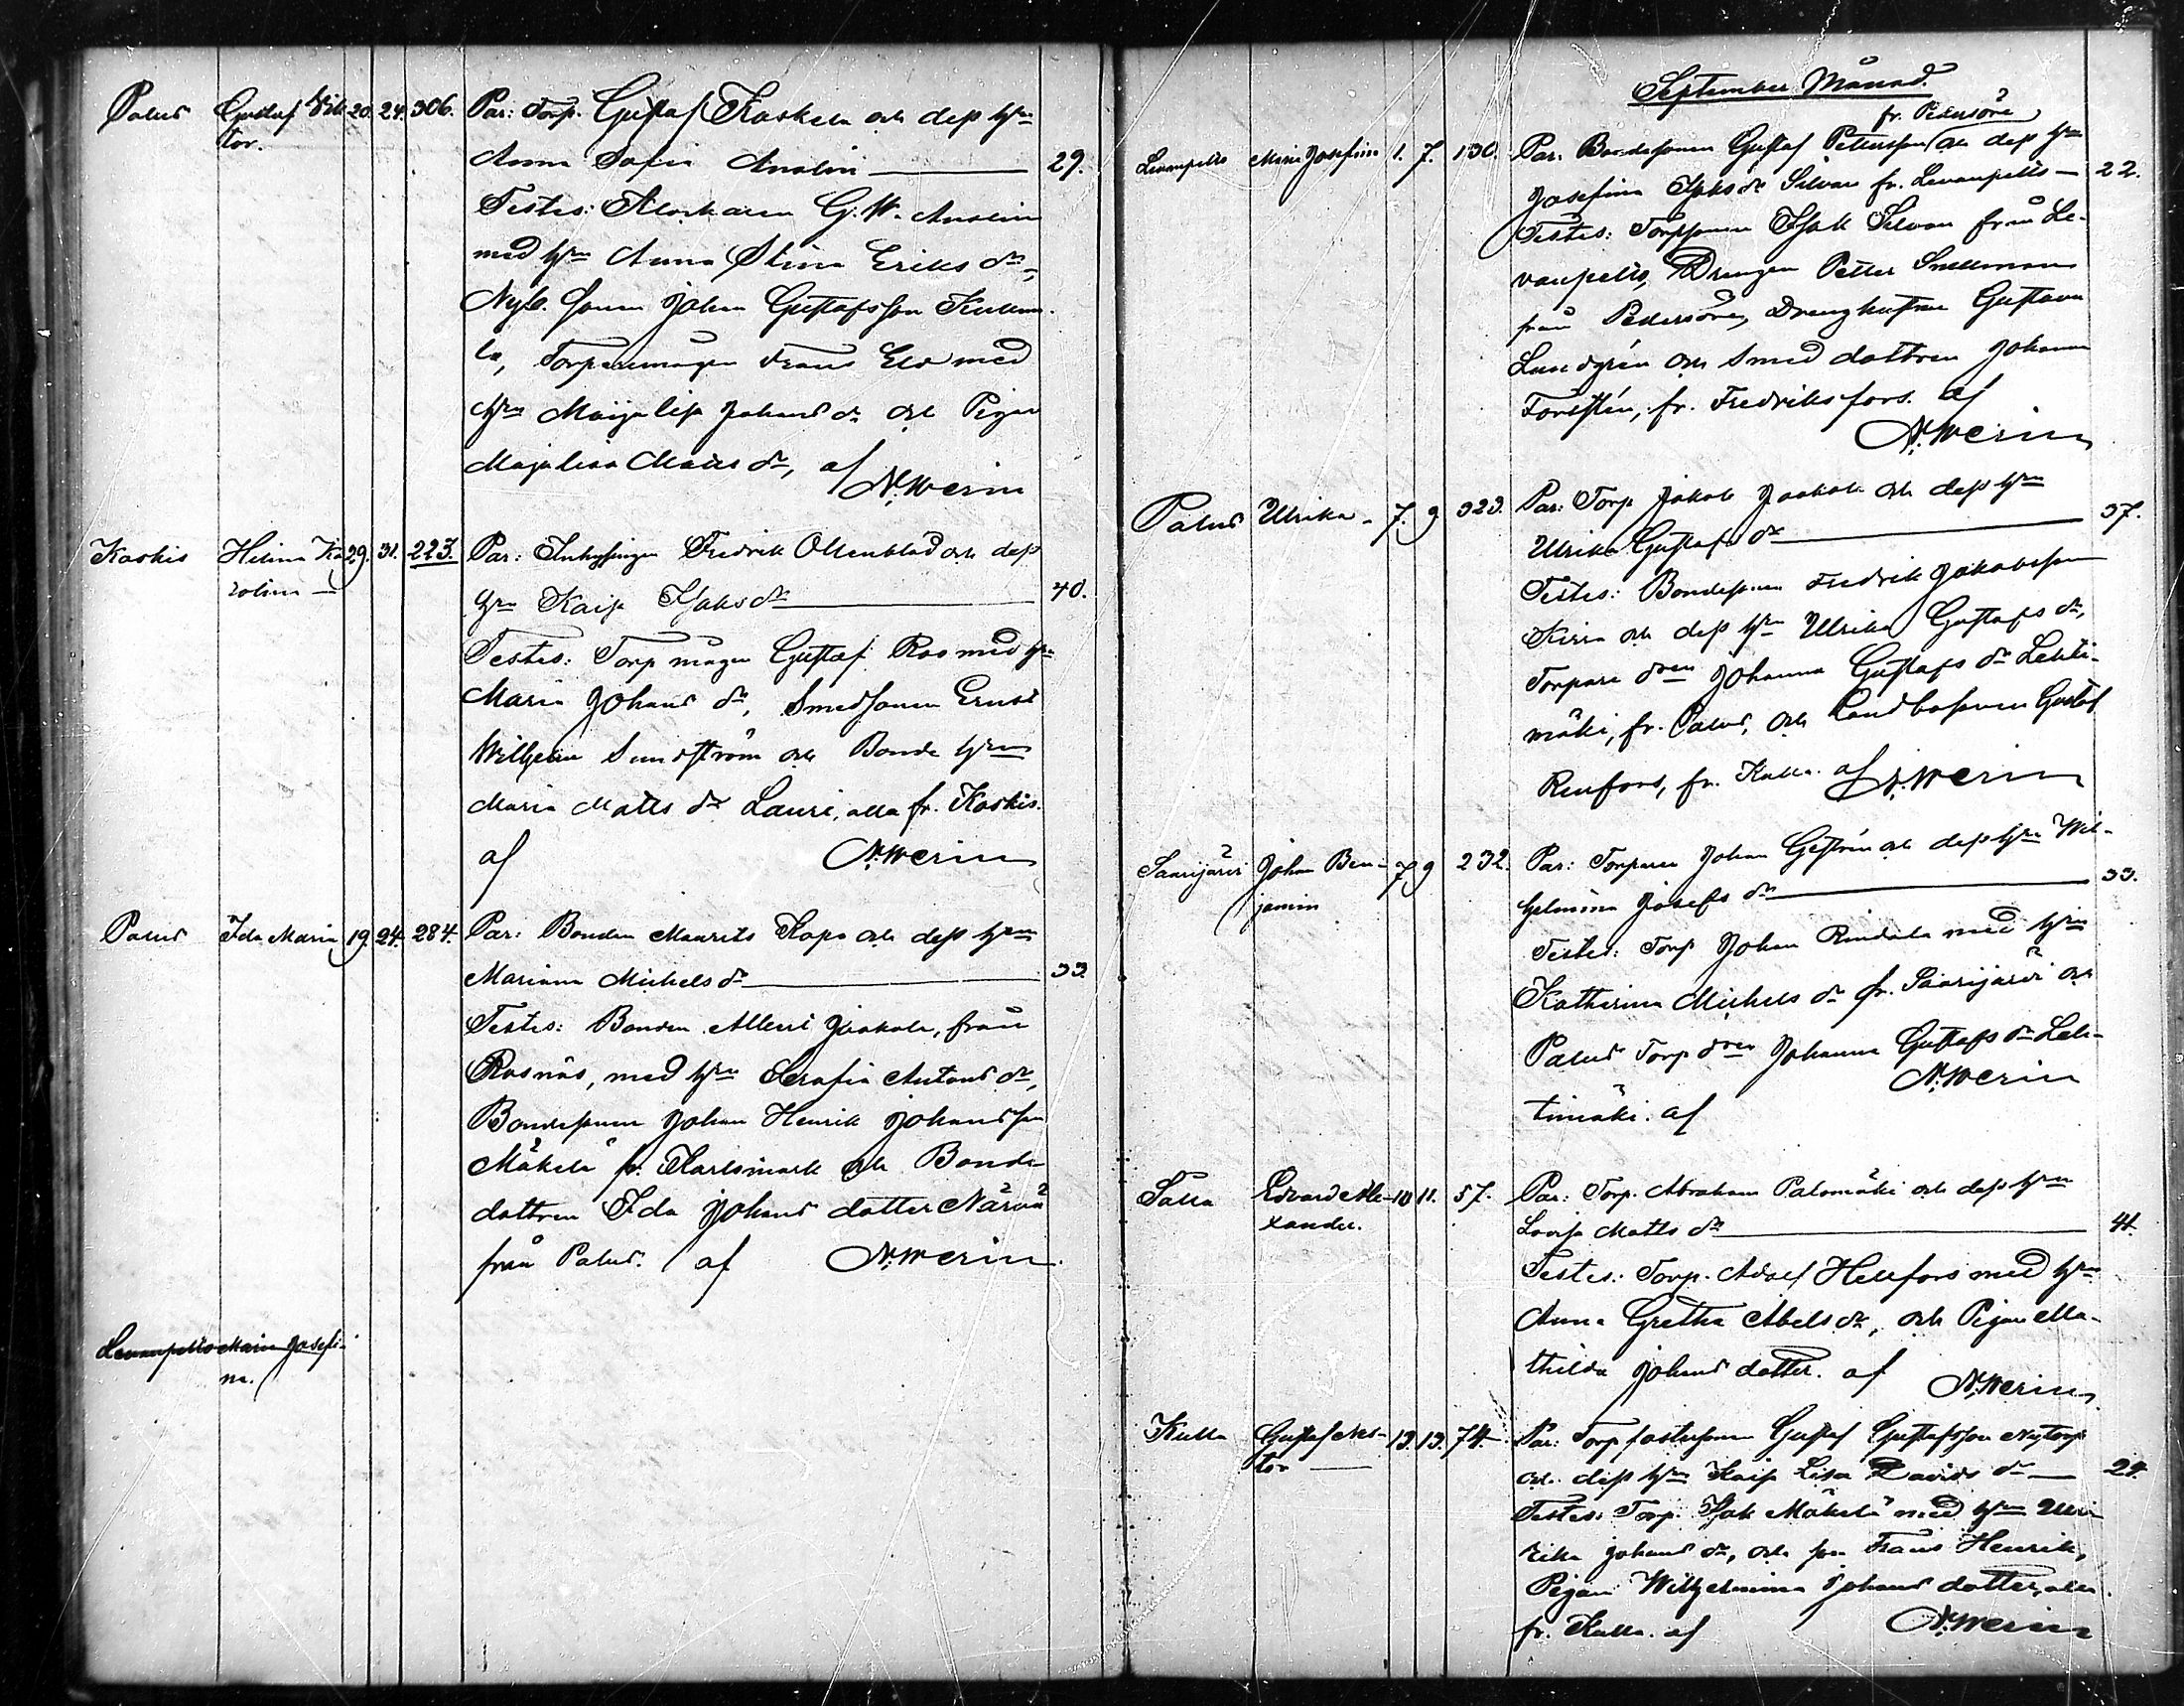 Palus Gustaf Vik- 20. 24. 306. Par: Torp. Gustaf Koskela och dess hru
tor.
Anna Sofia Analin 29.
Testes: Klockaren G. W. Analin
med hru Anna Stina Eriks dr,
Nyb. sonen Johan Gustafsson
la, Torparemågen Frans Elo med
hru Maija Lisa Johans dr och Pigan
Majalisa Matts dr, af
N. Werin
Koskis Helina Ka- 29. 31. 223. Par: Inhysingen Fredrik Ollenblad och dess
rolina
hru Kaisa Isaks dr 40.
Testes: Torp mågen Gustaf Roo med hru
Maria Johans dr, Smedsonen Ernst
Wilhelm Sundström och Bonde hrun
Maria Matts dr Lauri, alla fr. Koskis.
af N. Werin
Palus Ida Maria 19. 24. 284. Par: Bonden Maurits Kapo och dess hru
Mariana Michels dr 33.
Testes: Bonden Albert Jaakola, från
Rosnäs, med hru Serafia Antons dr,
Bondesonen Johan Henrik Johansson
Mäkelä fr. Karlsmark och Bonde-
dottren Ida Johans dotter Närvä
från Palus. af N. Werin.
Levanpelto Maria Josefi-
na.
September Månad.
fr. Pedersöre
Levanpelto Maria Josefina 1. 7. 130. Par: Bondesonen Gustaf Pettersson och dess hru
Josefina Isaks dr Silvan fr. Levanpelto 22.
Testes: Torpsonen Isak Silvan från Le-
vanpelto, Drengen Petter Snellman
från Pedersöre, Drenghustrun Gustava
Lundgrén och Smed dottren Johanna
Forsstén, fr. Fredriksfors. af
N. Werin
Palus Ulrika 7. 9 323. Par: Torp Jakob Jaakola och dess hru
Ulrika Gustafs dr 37.
Testes: Bondesonen Fredrik Jakobsson
och dess hru Ulrika Gustafs dr,
Torpare dren Johanna Gustafs dr Lehti-
mäki, fr. Palus, och Landbosonen Gustaf
Renfors, fr. Kulla. af N. Werin
Saarijärvi Johan Ben- 7 9 232. Par: Torparen Johan Gestrin och dess hru Wil-
jamin
helmina Josefs dr 33.
Testes: Torp Johan Rindala med hru
Katharina Michels dr fr. Saarijärvi och
Palus Torp dren Johanna Gustafs dr Leh-
N. Werin
timäki. af
Salla Edvard Ale- 10 11. 57. Par: Torp. Abraham Palomäki och dess hru
xander.
Lovisa Matts dr 41.
Testes: Torp. Adolf Hellfors med hru
Anna Gretha Abels dr, och Pigan Ma-
thilda Johans dotter. af N. Werin
Kulla Gustaf Nes- 13. 13. 74. Par: Torp fostersonen Gustaf Gustafsson Nytorp
tor
och dess hru Kaisa Lisa Davids dr 24.
Testes: Torp. Isak Mäkelä med hru Ul-
rika Johans dr, och son Frans Henrik,
Pigan Wilhelmina Johans dotter, alla
fr. Kulla. af N. Werin